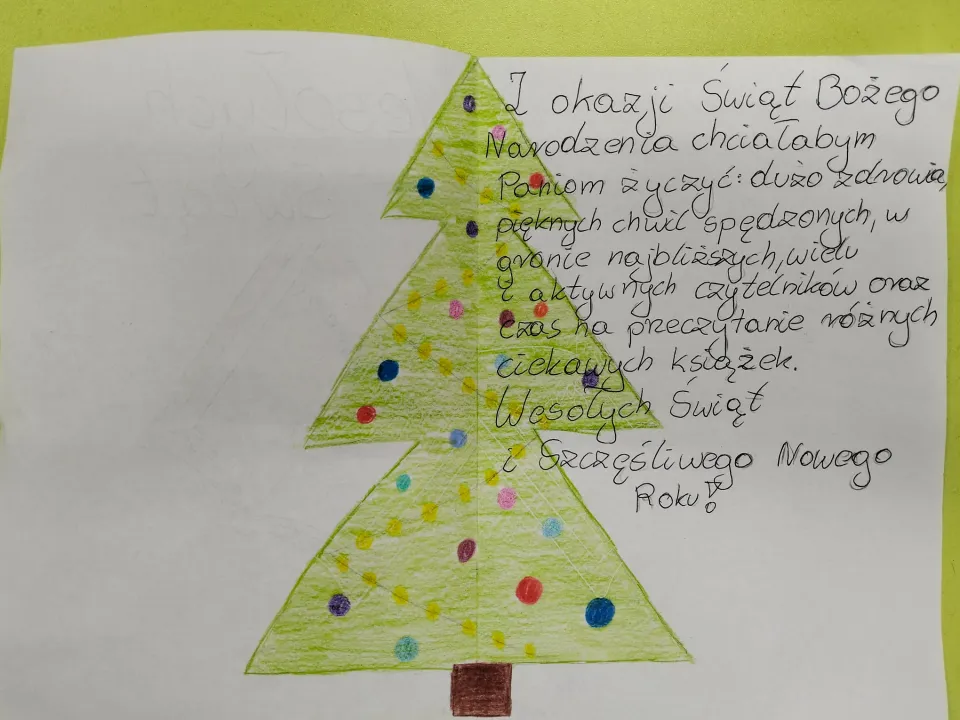 Z okazji Świąt Bożego
Narodzenia chciałabym
Paniom życzyć: dużo zdrowia,
pięknych chwil spędzonych, w
gronie najbliższych, wielu
i aktywnych czytelników oraz
czas na przeczytanie różnych
ciekawych książek.
Wesołych Świąt
i Szczęśliwego Nowego
Roku!